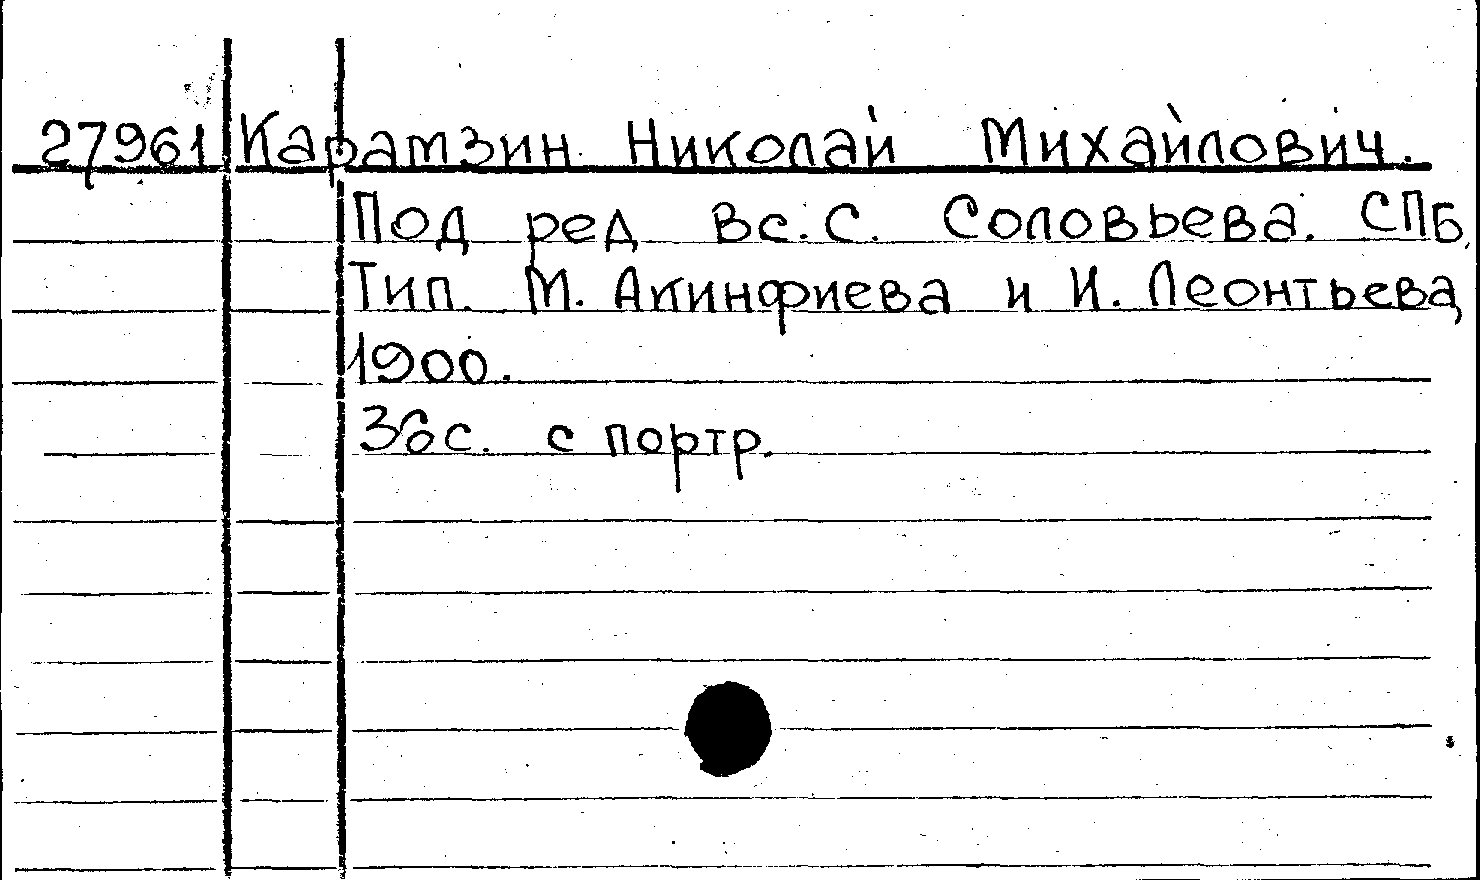 27961 Карамзин Николай Михайлович.
Под ред Вс. С. Соловьева. СПБ,
Тип. М. Акинфиева и И. Леонтьева,
1900.
36 с. с портр.